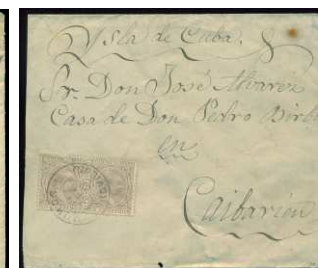 Ysla de Cuba.
Sr. Don José Alvarez
Casa de Don Pedro
en
Caibarien